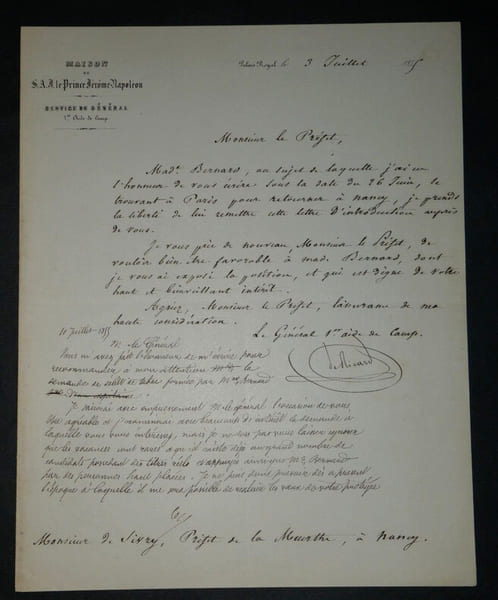 MAISON
DE
S.A.I. le Prince Jérôme Napoléon
SERVICE DU GÉNÉRAL
1er Aide de Camp.
Palais Royal le 3 Juillet 1855
Monsieur le Préfet,
Made Bernard, au sujet de laquelle j'ai eu
l'honneur de vous écrire sous la date du 26 Juin, se
trouvant à Paris pour retourner à Nancy, je prends
la liberté de lui remettre cette lettre d'introduction auprès
de vous.
Je vous prie de nouveau, Monsieur le Préfet, de
vouloir bien être favorable à mad. Bernard, dont
je vous ai exposé la position, et qui est digne de votre
haut et bienveillant intérêt.
Agréez, Monsieur le Préfet, l'assurance de ma
haute considération.
Le Général 1er aide de Camp.
de Ricard
10 Juillet 1855
M. le Général
Vous m'avez fait l'honneur de m'écrire pour
recommander à mon attention la
demande de débit de tabac formée par Me Bernard
Je saisirai avec empressement M. le Général l'occasion de vous
être agréable et j'examinerai avec beaucoup d'intérêt la demande à
laquelle vous vous intéressez, mais je ne dois pas vous laisser ignorer
que les vacances sont rares et qu'il existe déjà un grand nombre de
candidats possédant des titres réels et appuyés
par des personnes haut placées. Je ne puis donc préciser dès à présent
l'époque à laquelle il me sera possible de réaliser les vœux de votre protégée
Monsieur de Sivry, Préfet de la Meurthe, à Nancy.